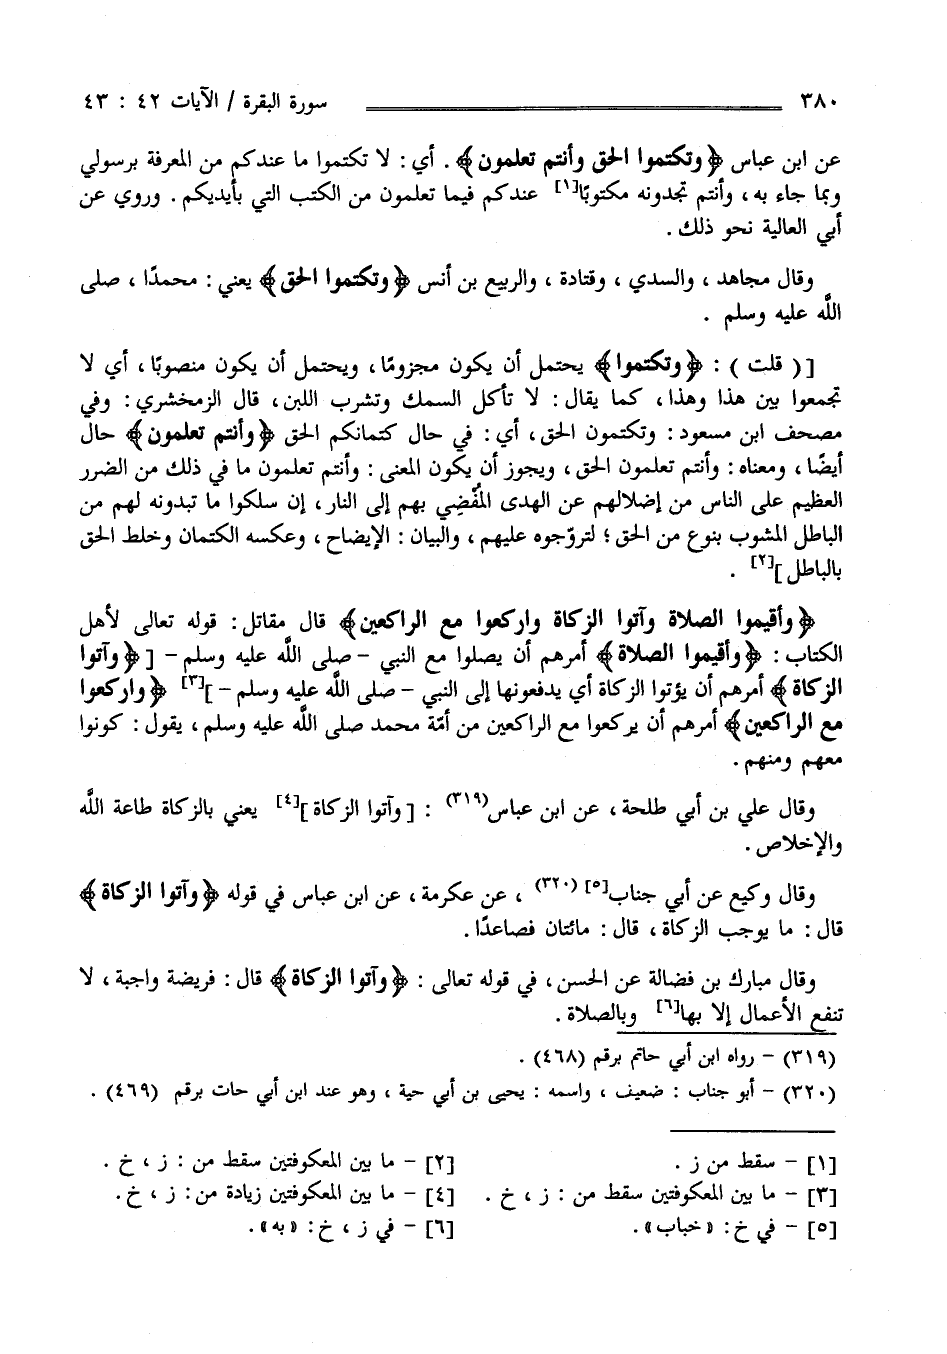 ٣٨٠ سورة البقرة / الآيات ٤٢ : ٤٣
عن ابن عباس ﴿وتكتموا الحق وأنتم تعلمون﴾ . أي : لا تكتموا ما عندكم من المعرفة برسولي
وبما جاء به ، وأنتم تجدونه مكتوبًا[١] عندكم فيما تعلمون من الكتب التي بأيديكم . وروي عن
أبي العالية نحو ذلك .
وقال مجاهد ، والسدي ، وقتادة ، والربيع بن أنس ﴿وتكتموا الحق﴾ يعني : محمدًا ، صلى
اللَّه عليه وسلم .
[( قلت ) : ﴿وتكتموا﴾ يحتمل أن يكون مجزومًا ، ويحتمل أن يكون منصوبًا ، أي لا
تجمعوا بين هذا وهذا ، كما يقال : لا تأكل السمك وتشرب اللبن ، قال الزمخشري : وفي
مصحف ابن مسعود : وتكتمون الحق ، أي : في حال كتمانكم الحق ﴿وأنتم تعلمون﴾ حال
أيضًا ، ومعناه : وأنتم تعلمون الحق ، ويجوز أن يكون المعنى : وأنتم تعلمون ما في ذلك من الضرر
العظيم على الناس من إضلالهم عن الهدى المُفْضِي بهم إلى النار ، إن سلكوا ما تبدونه لهم من
الباطل المشوب بنوع من الحق ؛ لتروّجوه عليهم ، والبيان : الإيضاح ، وعكسه الكتمان وخلط الحق
بالباطل][٢] .
﴿وأقيموا الصلاة وآتوا الزكاة واركعوا مع الراكعين﴾ قال مقاتل : قوله تعالى لأهل
الكتاب : ﴿وأقيموا الصلاة﴾ أمرهم أن يصلوا مع النبي - صلى اللَّه عليه وسلم - [﴿وآتوا
الزكاة﴾ أمرهم أن يؤتوا الزكاة أي يدفعونها إلى النبي - صلى اللَّه عليه وسلم -][٣] ﴿واركعوا
مع الراكعين﴾ أمرهم أن يركعوا مع الراكعين من أمّة محمد صلى اللَّه عليه وسلم ، يقول : كونوا
معهم ومنهم .
وقال علي بن أبي طلحة ، عن ابن عباس(٣١٩) : [وآتوا الزكاة][٤] يعني بالزكاة طاعة اللَّه
والإخلاص .
وقال وكيع عن أبي جناب[٥] (٣٢٠) ، عن عكرمة ، عن ابن عباس في قوله ﴿وآتوا الزكاة﴾
قال : ما يوجب الزكاة ، قال : مائتان فصاعدًا .
وقال مبارك بن فضالة عن الحسن ، في قوله تعالى : ﴿وآتوا الزكاة﴾ قال : فريضة واجبة ، لا
تنفع الأعمال إلا بها[٦] وبالصلاة .
(٣١٩) - رواه ابن أبي حاتم برقم (٤٦٨) .
(٣٢٠) - أبو جناب : ضعيف ، واسمه : يحيى بن أبي حية ، وهو عند ابن أبي حات برقم (٤٦٩) .
[١] - سقط من ز . [٢] - ما بين المعكوفتين سقط من : ز ، خ .
[٣] - ما بين المعكوفتين سقط من : ز ، خ . [٤] - ما بين المعكوفتين زيادة من : ز ، خ .
[٥] - في خ : «خباب» . [٦] - في ز ، خ : «به» .